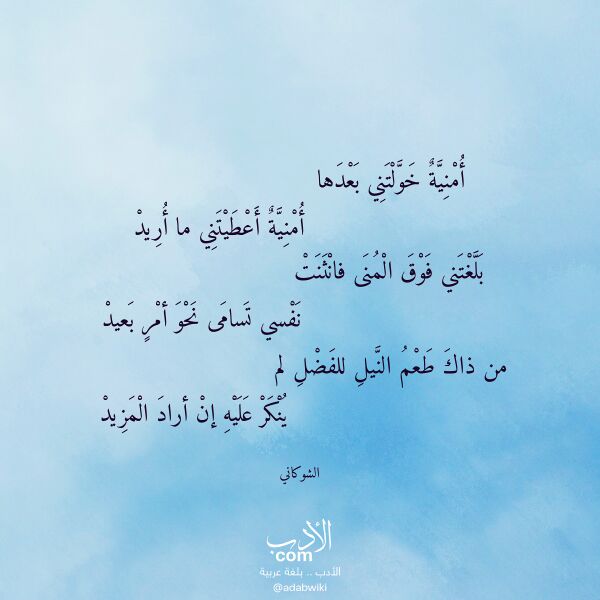 أُمْنِيَّةٌ خَوَّلْتَنِي بَعْدَها
أُمْنِيَّةٌ أَعْطَيْتَنِي ما أُرِيدْ
بَلَّغْتَني فَوْقَ الْمُنَى فانْثَنَتْ
نَفْسي تَسامَى نَحْوَ أمْرٍ بَعيدْ
من ذاكَ طَعْمُ النَّيلِ للفَضْلِ لم
يُنْكَرْ عَلَيْهِ إنْ أرادَ الْمَزِيدْ
الشوكاني
الأدب
com
الأدب .. بلغة عربية
@adabwiki